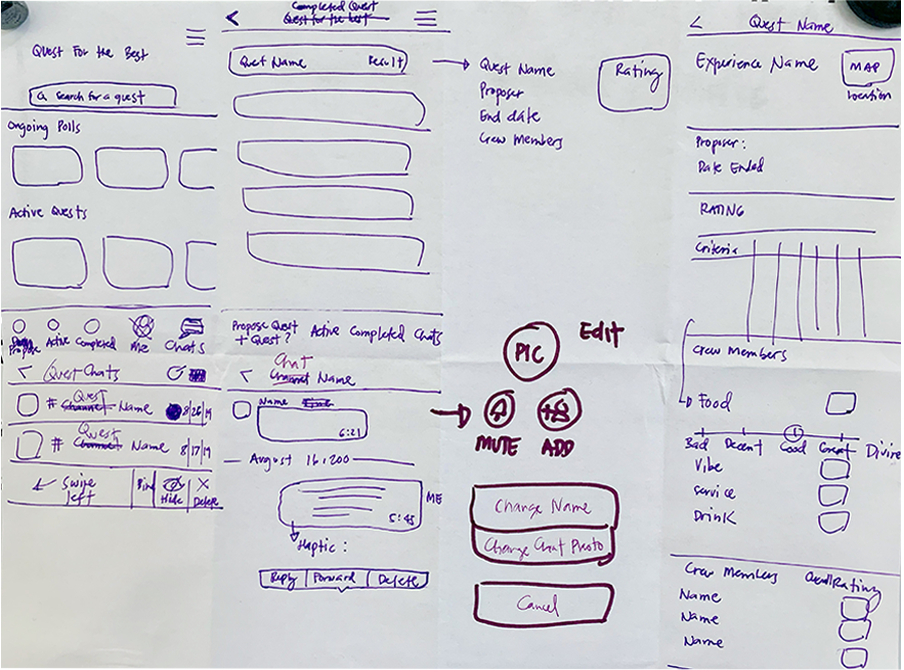 Quest For the Best
Search for a quest
Ongoing Polls
Active Quests
Propose Active Completed Me Chats
Quest Chats
# Quest Channel Name 8/26/19
# Quest Channel Name 8/17/19
Swipe left
Pin Hide Delete
Completed Quest
Quest for the best
Quest Name Result
Propose Quest + Quest? Active Completed Chats
Chat
Channel Name
Name Time
6:21
August 16, 200
ME
5:45
Haptic:
Reply Forward Delete
Quest Name
Proposer
End date
Crew Members
Rating
PIC
Edit
MUTE ADD
Change Name
Change Chat Photo
Cancel
Quest Name
Experience Name
MAP
location
Proposer:
Date Ended
RATING
Criteria
Crew Members
Food
Bad Decent Good Great Divine
Vibe
Service
Drink
Crew Members Overall Rating
Name
Name
Name